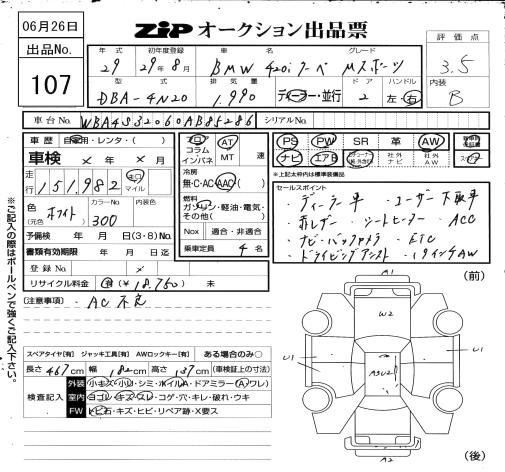 06月26日
ZIP オークション出品票
出品No.
107
年式 初年度登録 車名 グレード
29 29年8月 BMW 420i クーペ Mスポーツ
型式 排気量 ドア ハンドル
DBA-4N20 1.990 ディーラー・並行 2 左・右
評価点
3.5
内装
B
車台No. WBA4S32060AB85286 シリアルNo.
車歴 自家用・レンタ・( )
車検 × 年 × 月
走行 151,982 キロ マイル
色(元色) ホワイト カラーNo. 300 内装色
予備検 年 月 日(3・6)No.
書類有効期限 年 月 日迄
登録No. ×
リサイクル料金 済 (¥18,750) 未
フロア コラム インパネ AT MT 速
冷房 無・C・AC・AAC( )
燃料 ガソリン・軽油・電気・その他( )
Nox 適合・非適合
乗車定員 4 名
PS PW SR 革 AW
ナビ エアB 社外ナビ 社外AW
※上記太枠内は標準装備品
セールスポイント
・ディーラー車 ・ユーザー下取車
・赤レザー ・シートヒーター ・ACC
・ナビ・バックカメラ ・ETC
・ドライビングアシスト ・19インチAW
(注意事項) ・AC不良
※ご記入の際はボールペンで強くご記入下さい。
スペアタイヤ[有] ジャッキ工具[有] AWロックキー[有] ある場合のみ○
長さ 467cm 幅 182cm 高さ 137cm (車検証上の寸法)
検査記入
外装 小キズ・小凹・シミ・ホイルA・ドアミラー(A・ワレ)
室内 ヨゴレ・キズ・スレ・コゲ・穴・キレ・破れ・ウキ
FW トビ石・キズ・ヒビ・リペア跡・X要ス
(前)
A1
W2
U1
U1
A2
(後)